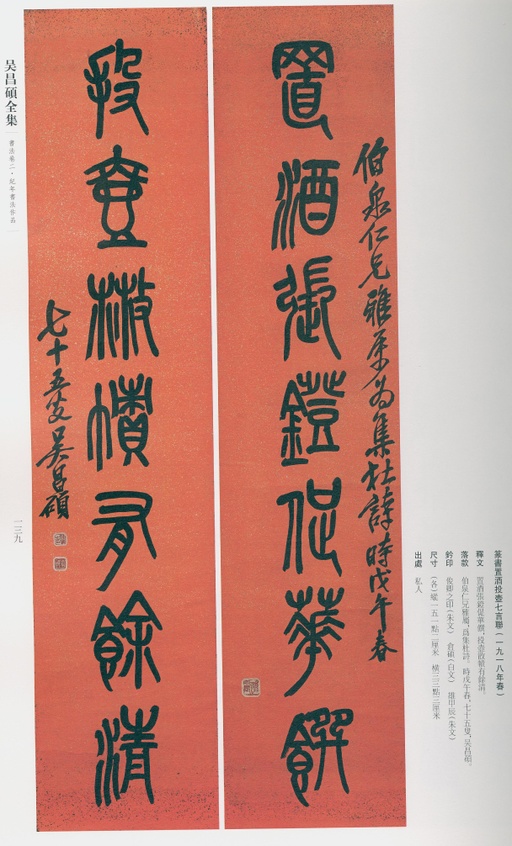 篆書置酒投壺七言聯（一九一八年春）
釋文 置酒張鐙促華饌，投壺散幘有餘清。
落款 伯泉仁兄雅屬，爲集杜詩。時戊午春，七十五叟，吳昌碩。
鈐印 俊卿之印（朱文） 倉碩（白文） 雄甲辰（朱文）
尺寸 （各）縱一五一點二厘米 橫三三點三厘米
出處 私人
伯泉仁兄雅屬為集杜詩時戊午春
置酒張鐙促華饌
投壺散幘有餘清
七十五叟吳昌碩
吴昌碩全集
書法卷二·紀年書法作品
一三九